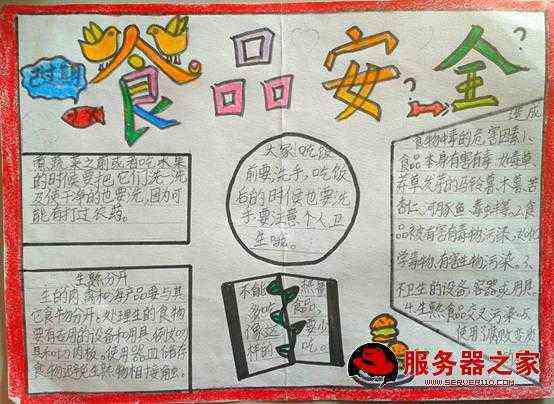 食品安全
？
？
煮蔬菜之前或者吃水果
的时候要把它们洗一洗
及候干净的也要洗，因为可
能有打过农药。
大家吃饭
前要洗手，吃饭
后的时候也要洗
手要注意个人卫
生哦。
造成
食物中毒的危害因素1、
食品本身有害有毒
芽早发芽的马铃薯、木薯、苦
杏仁、河豚鱼、毒虫等。2、食
品被有害有毒物污染，如化
学毒物、有害生物污染。3、
不卫生的设备、容器或用具。
4、生熟食品交叉污染。5、
使用了腐败变质
生熟分开
生的肉、禽和海产品要与其
它食物分开。处理生的食物
要有专用的设备和用具，例伏切
具和切肉板。使用器皿储存
食物避免生熟物相接触。
不能
多吃
像这
样的
食品，
要少
吃。
服务器之家
WWW.SERVER110.COM